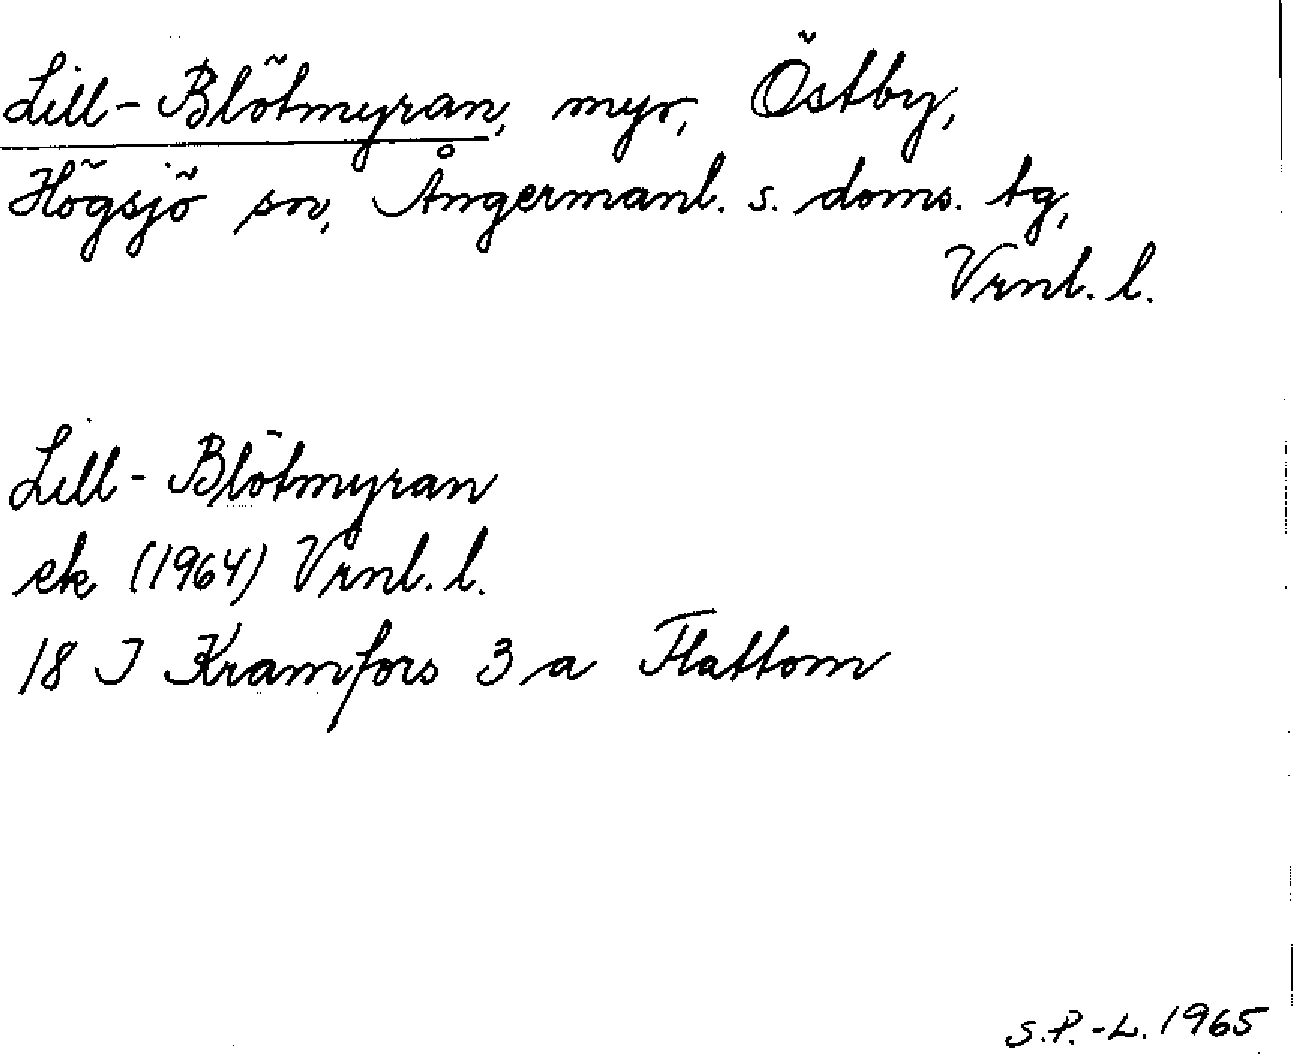 Lill-Blötmyran, myr, Östby,
Högsjö sn, Ångermanl. s. doms. tg,
Vrnl. l.
Lill-Blötmyran
ek (1964) Vrnl. l.
18 J Kramfors 3 a Flattom
S.P.-L. 1965